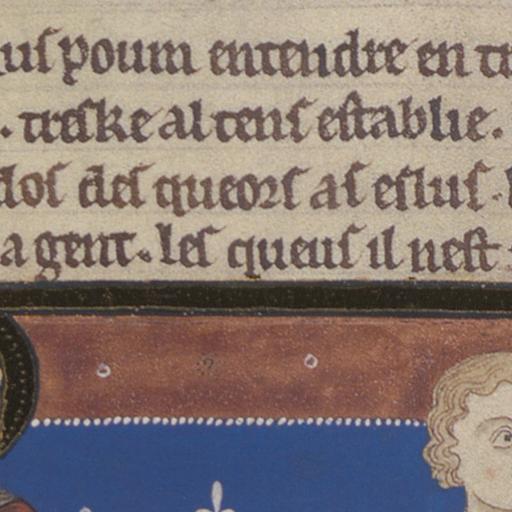 us poum entendre en tr
. treske al tens establie.
dos des queors as eslus.
a gent. les queus il uest